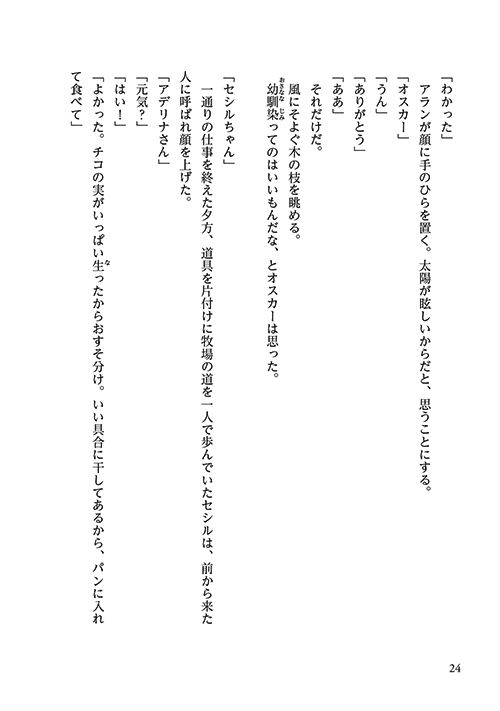 「わかった」
　アランが顔に手のひらを置く。太陽が眩しいからだと、思うことにする。
「オスカー」
「うん」
「ありがとう」
「ああ」
　それだけだ。
　風にそよぐ木の枝を眺める。
　幼馴染ってのはいいもんだな、とオスカーは思った。
おさななじみ
「セシルちゃん」
　一通りの仕事を終えた夕方、道具を片付けに牧場の道を一人で歩んでいたセシルは、前から来た
人に呼ばれ顔を上げた。
「アデリナさん」
「元気？」
「はい！」
「よかった。チコの実がいっぱい生ったからおすそ分け。いい具合に干してあるから、パンに入れ
な
て食べて」
24